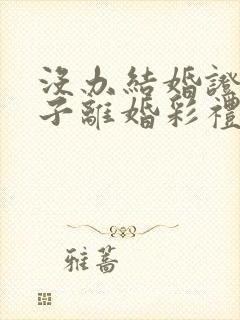 没办結婚證
子離婚彩禮
雅蕎